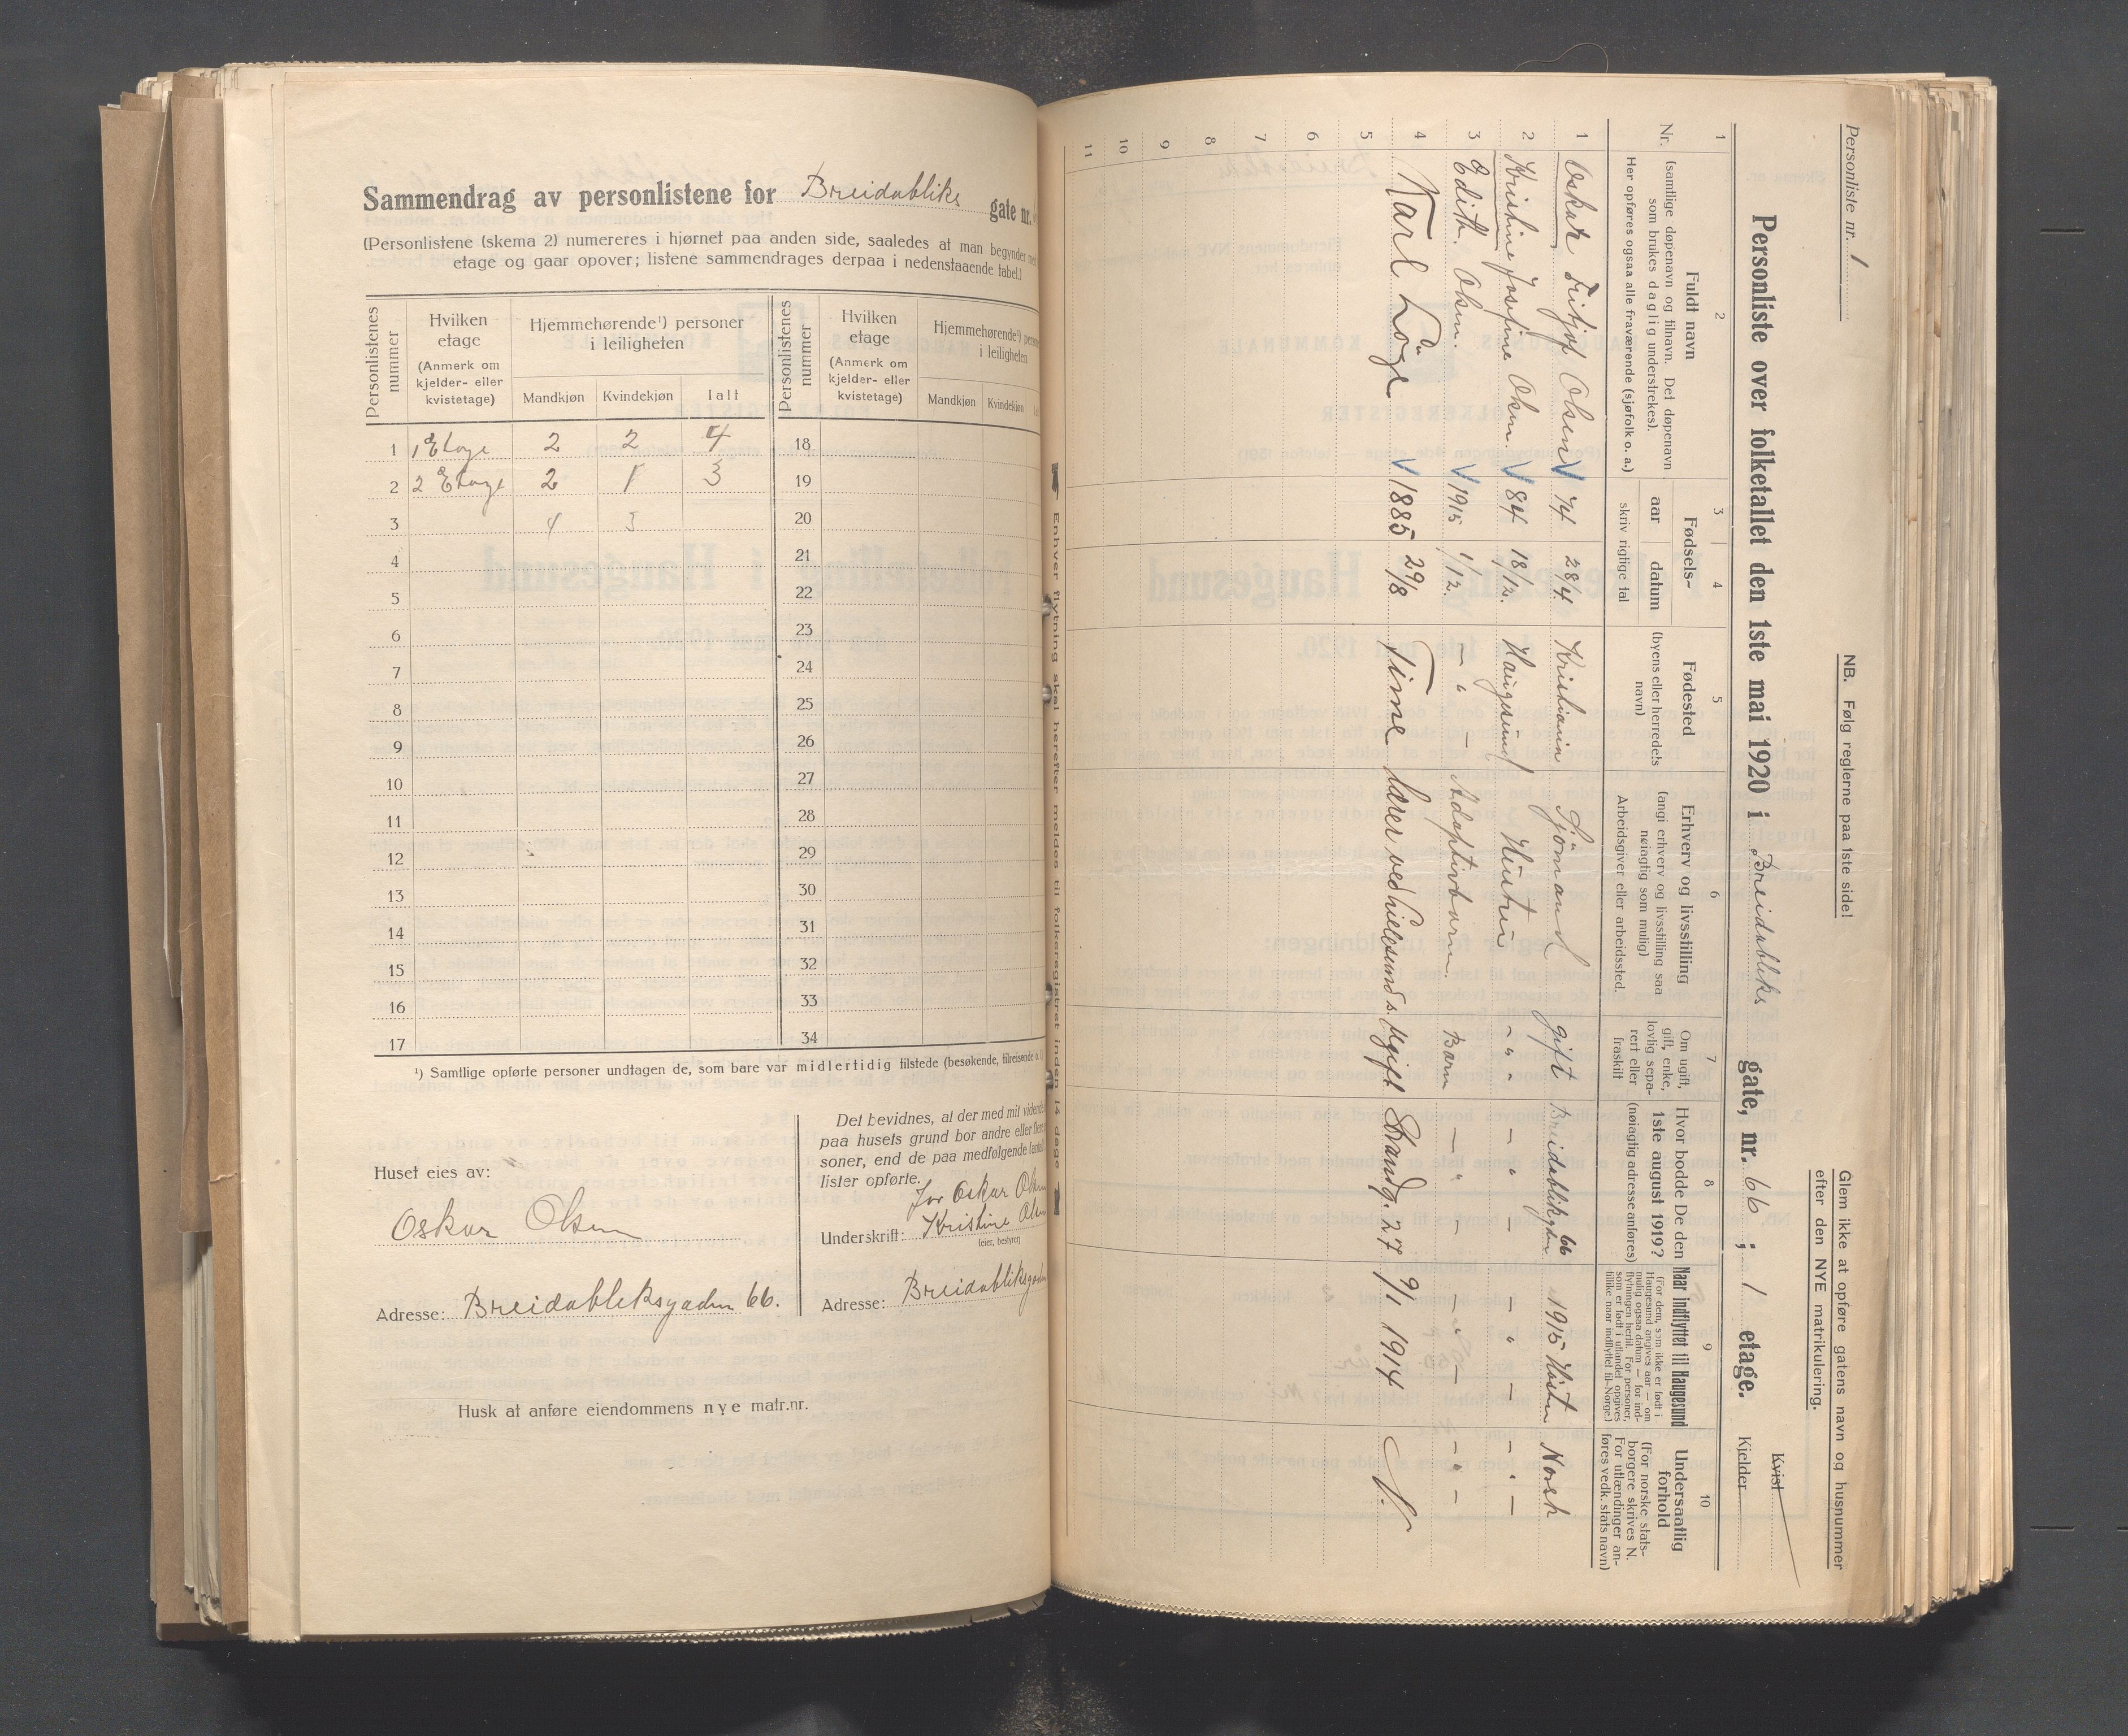 Sammendrag av personlistene for Breidabliks gate nr.
(Personlistene (skema 2) numereres i hjørnet paa anden side, saaledes at man begynder med
etage og gaar opover; listene sammendrages derpaa i nedenstaaende tabel.)
Personlistenes nummer
Hvilken etage
(Anmerk om kjelder- eller kvistetage)
Hjemmehørende¹) personer i leiligheten
Mandkjøn Kvindekjøn Ialt
Personlistenes nummer
Hvilken etage
(Anmerk om kjelder- eller kvistetage)
Hjemmehørende¹) i leiligheten
Mandkjøn Kvindekjøn
1 1 Etage 2 2 4 18
2 2 Etage 2 1 3 19
3 4 3 20
4 21
5 22
6 23
7 24
8 25
9 26
10 27
11 28
12 29
13 30
14 31
15 32
16 33
17 34
¹) Samtlige opførte personer undtagen de, som bare var midlertidig tilstede (besøkende, tilreisende
Huset eies av:
Oskar Olsen
Adresse: Breidabliksgaden 66.
Det bevidnes, at der med mit vidende
paa husets grund bor andre eller
soner, end de paa medfølgende
lister opførte.
for Oskar Olsen
Underskrift: Kristine Olsen
(eier, bestyrer)
Adresse: Breidabliksgaden
Husk at anføre eiendommens nye matr.nr.
Personliste nr. 1
NB. Følg reglerne paa 1ste side!
Glem ikke at opføre gatens navn og husnummer
efter den NYE matrikulering.
Personliste over folketallet den 1ste mai 1920 i Breidabliks gate, nr. 66 ; 1 etage.
Kvist
Kjelder
1 2 3 4 5 6 7 8 9 10
Nr.
Fuldt navn
(samtlige døpenavn og tilnavn. Det døpenavn
som brukes daglig understrekes).
Her opføres ogsaa alle fraværende (sjøfolk o. a.)
Fødsels-
aar datum
skriv rigtige tal
Fødested
(byens eller herredets
navn)
Erhverv og livsstilling
(angi erhverv og livsstilling saa
nøiagtig som mulig)
Arbeidsgiver eller arbeidssted.
Om ugift,
gift, enke,
lovlig sepa-
rert eller
fraskilt
Hvor bodde De den
1ste august 1919?
(nøiagtig adresse anføres)
Naar indflyttet til Haugesund
(For dem, som ikke er født i
Haugesund angives aar — om
mulig ogsaa datum — for ind-
flytningen hertil. For personer,
som er født i utlandet opgives
tillike naar indflyttet til Norge.)
Undersaatlig
forhold
(For norske stats-
borgere skrives N.
For utlændinger an-
føres vedk. stats navn)
1 Oskar Fritjof Olsen V 74 28/4 Kristiania Sjömand gift Breidabliksgaden 66 1915 Hösten Norsk
2 Kristine Josefine Olsen V 84 18/12. Haugesund Hustru " " " — " — — " — — " —
3 Edith. Olsen. V 1915 1/12. — " — Adoptivbarn. Barn — " — — " — — " —
4 Karl Löge V 1885 29/8 Time Lærer ved Ugift Strandg. 27 9/1 1914 N.
5
6
7
8
9
10
11
Enhver flytning skal herefter meldes til folkeregistret inden 14 dage